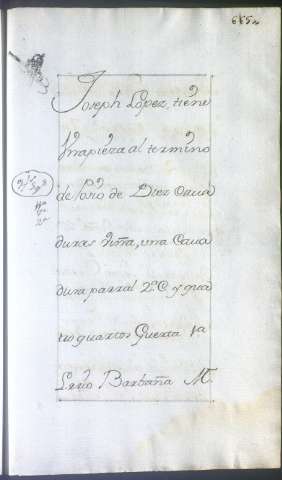 665
Joseph Lopez, tiene
Vna pieza al termino
de Soto de Diez Caua
duras Viña, una Caua
dura parral 2ª C y qua
tro quartos Huerta 1ª
Barbaña M.